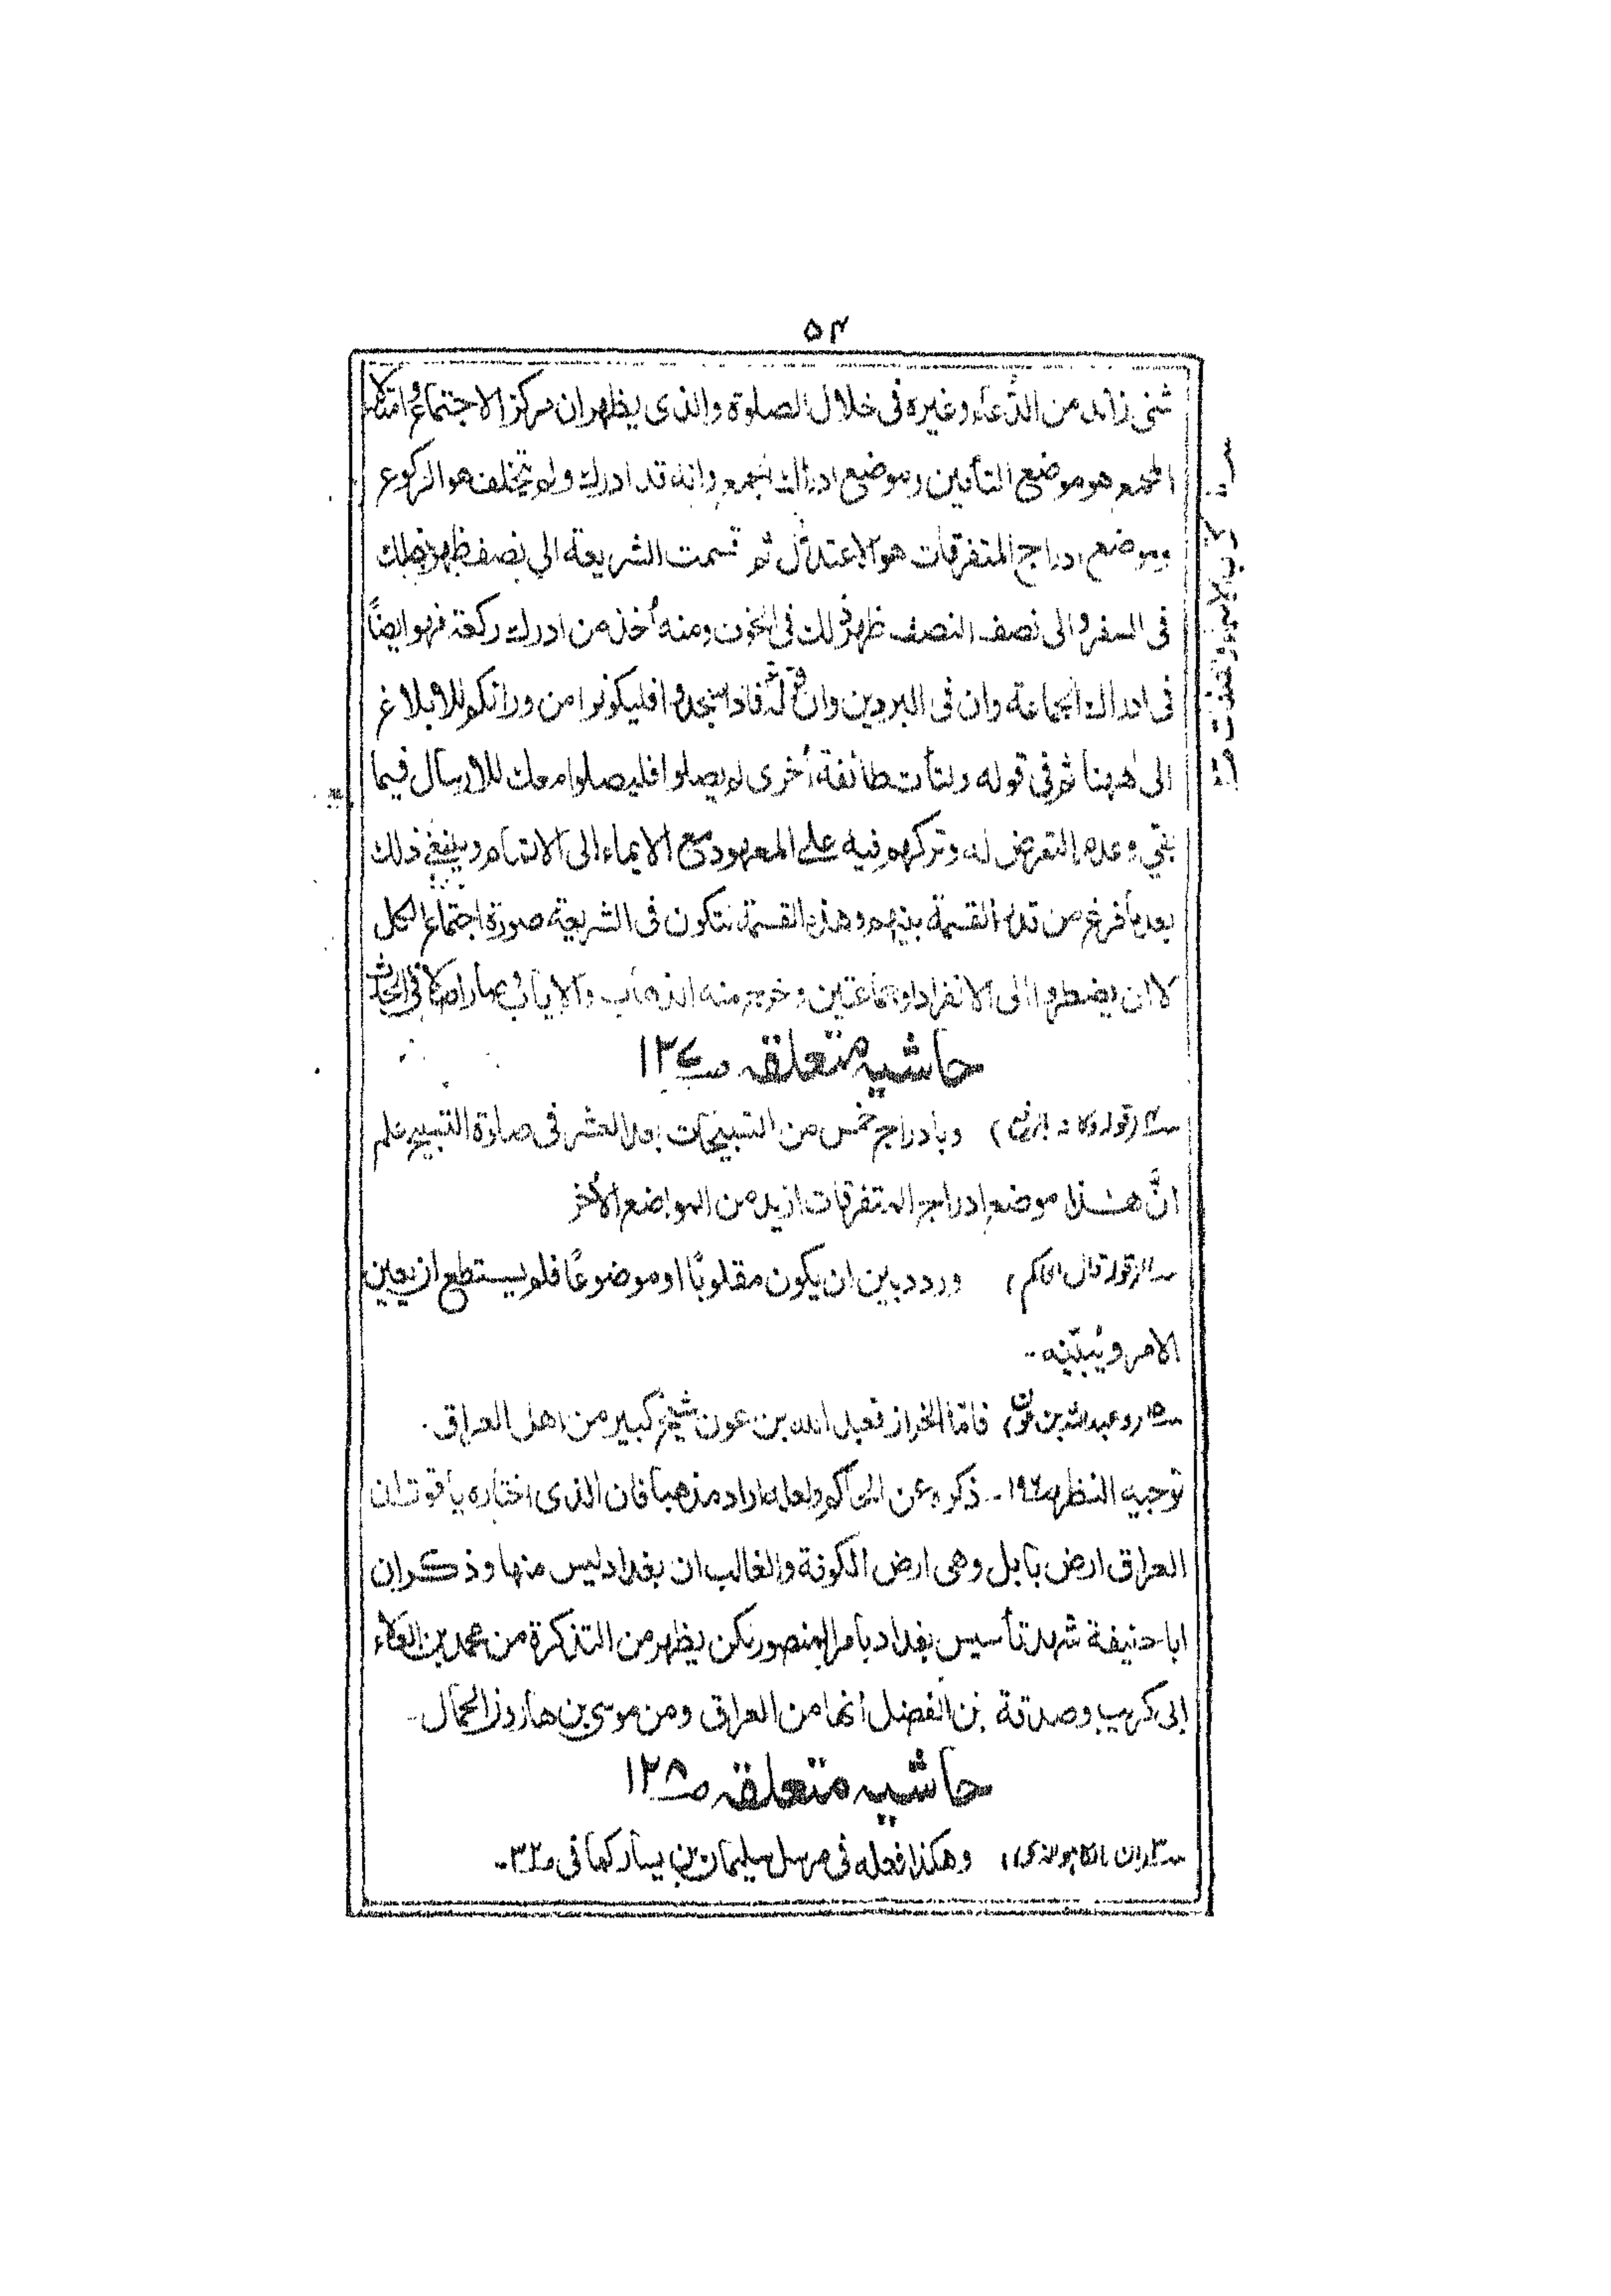 ۵۴
شئ زائد من الدُّعاء وغيره فى خلال الصلوة والذى يظهر ان مركز الاجتماع وامتثال
المجمع هو موضع التأمين وموضع ادراك الجمع وانه قد ادرك ولم يتخلف هو الركوع
وموضع ادراج المتفرقات هو الاعتدال ثم قسمت الشريعة الى نصف فظهر ذلك
فى السفر والى نصف النصف فظهر ذلك فى الخوف ومنه أخذ من ادرك ركعة فهو ايضاً
فى ادراك الجماعة وان فى البردين وان قوله فاذا سجدوا فليكونوا من ورائكم للابلاغ
الى ههنا ثم فى قوله ولتأت طائفة أخرى لم يصلوا فليصلوا معك للارسال فيما
بقي وعدم التعرض له وتركهم فيه على المعهود مع الايماء الى الاتمام وينبغى ذلك
بعد ما فرغ من تلك القسمة بينهم وهذه القسمة تتكون فى الشريعة صورة اجتماع الكل
لا ان يضطروا الى الانفراد او جماعتين وخرج منه الذهاب والاياب وصار اصلا فى الحدث
حاشيه متعلقه صـ ١٢٧
وبادراج خمس من التسبيحات بعد العشر فى صلوة التسبيح علم
انَّ هــذا موضع ادراج المتفرقات ازيد من المواضع الأخر
(قوله قال الحاكم) وردد بين ان يكون مقلوبًا او موضوعًا فلم يستطع ان يعين
الامر ويُبيّنه ..
(وعبد الله بن عون) فامّا الخراز فعبد الله بن عون شيخ كبير من اهل العراق .
توجيه النظر صـ ١٩٦ - ذكره عن الحاكم ولعله اراد مذهبا فان الذى اختاره ياقوت ان
العراق ارض بابل وهى ارض الكوفة والغالب ان بغداد ليس منها وذكر ان
ابا حنيفة شهد تأسيس بغداد بامر المنصور لكن يظهر من التذكرة من محمد بن العلاء
ابى كريب وصدقة بن الفضل انها من العراق ومن موسى بن هارون الحمال -
حاشيه متعلقه صـ ١٢٨
وهكذا فعله فى مرسل سليمان بن يسار كما فى صـ ٣٢ -